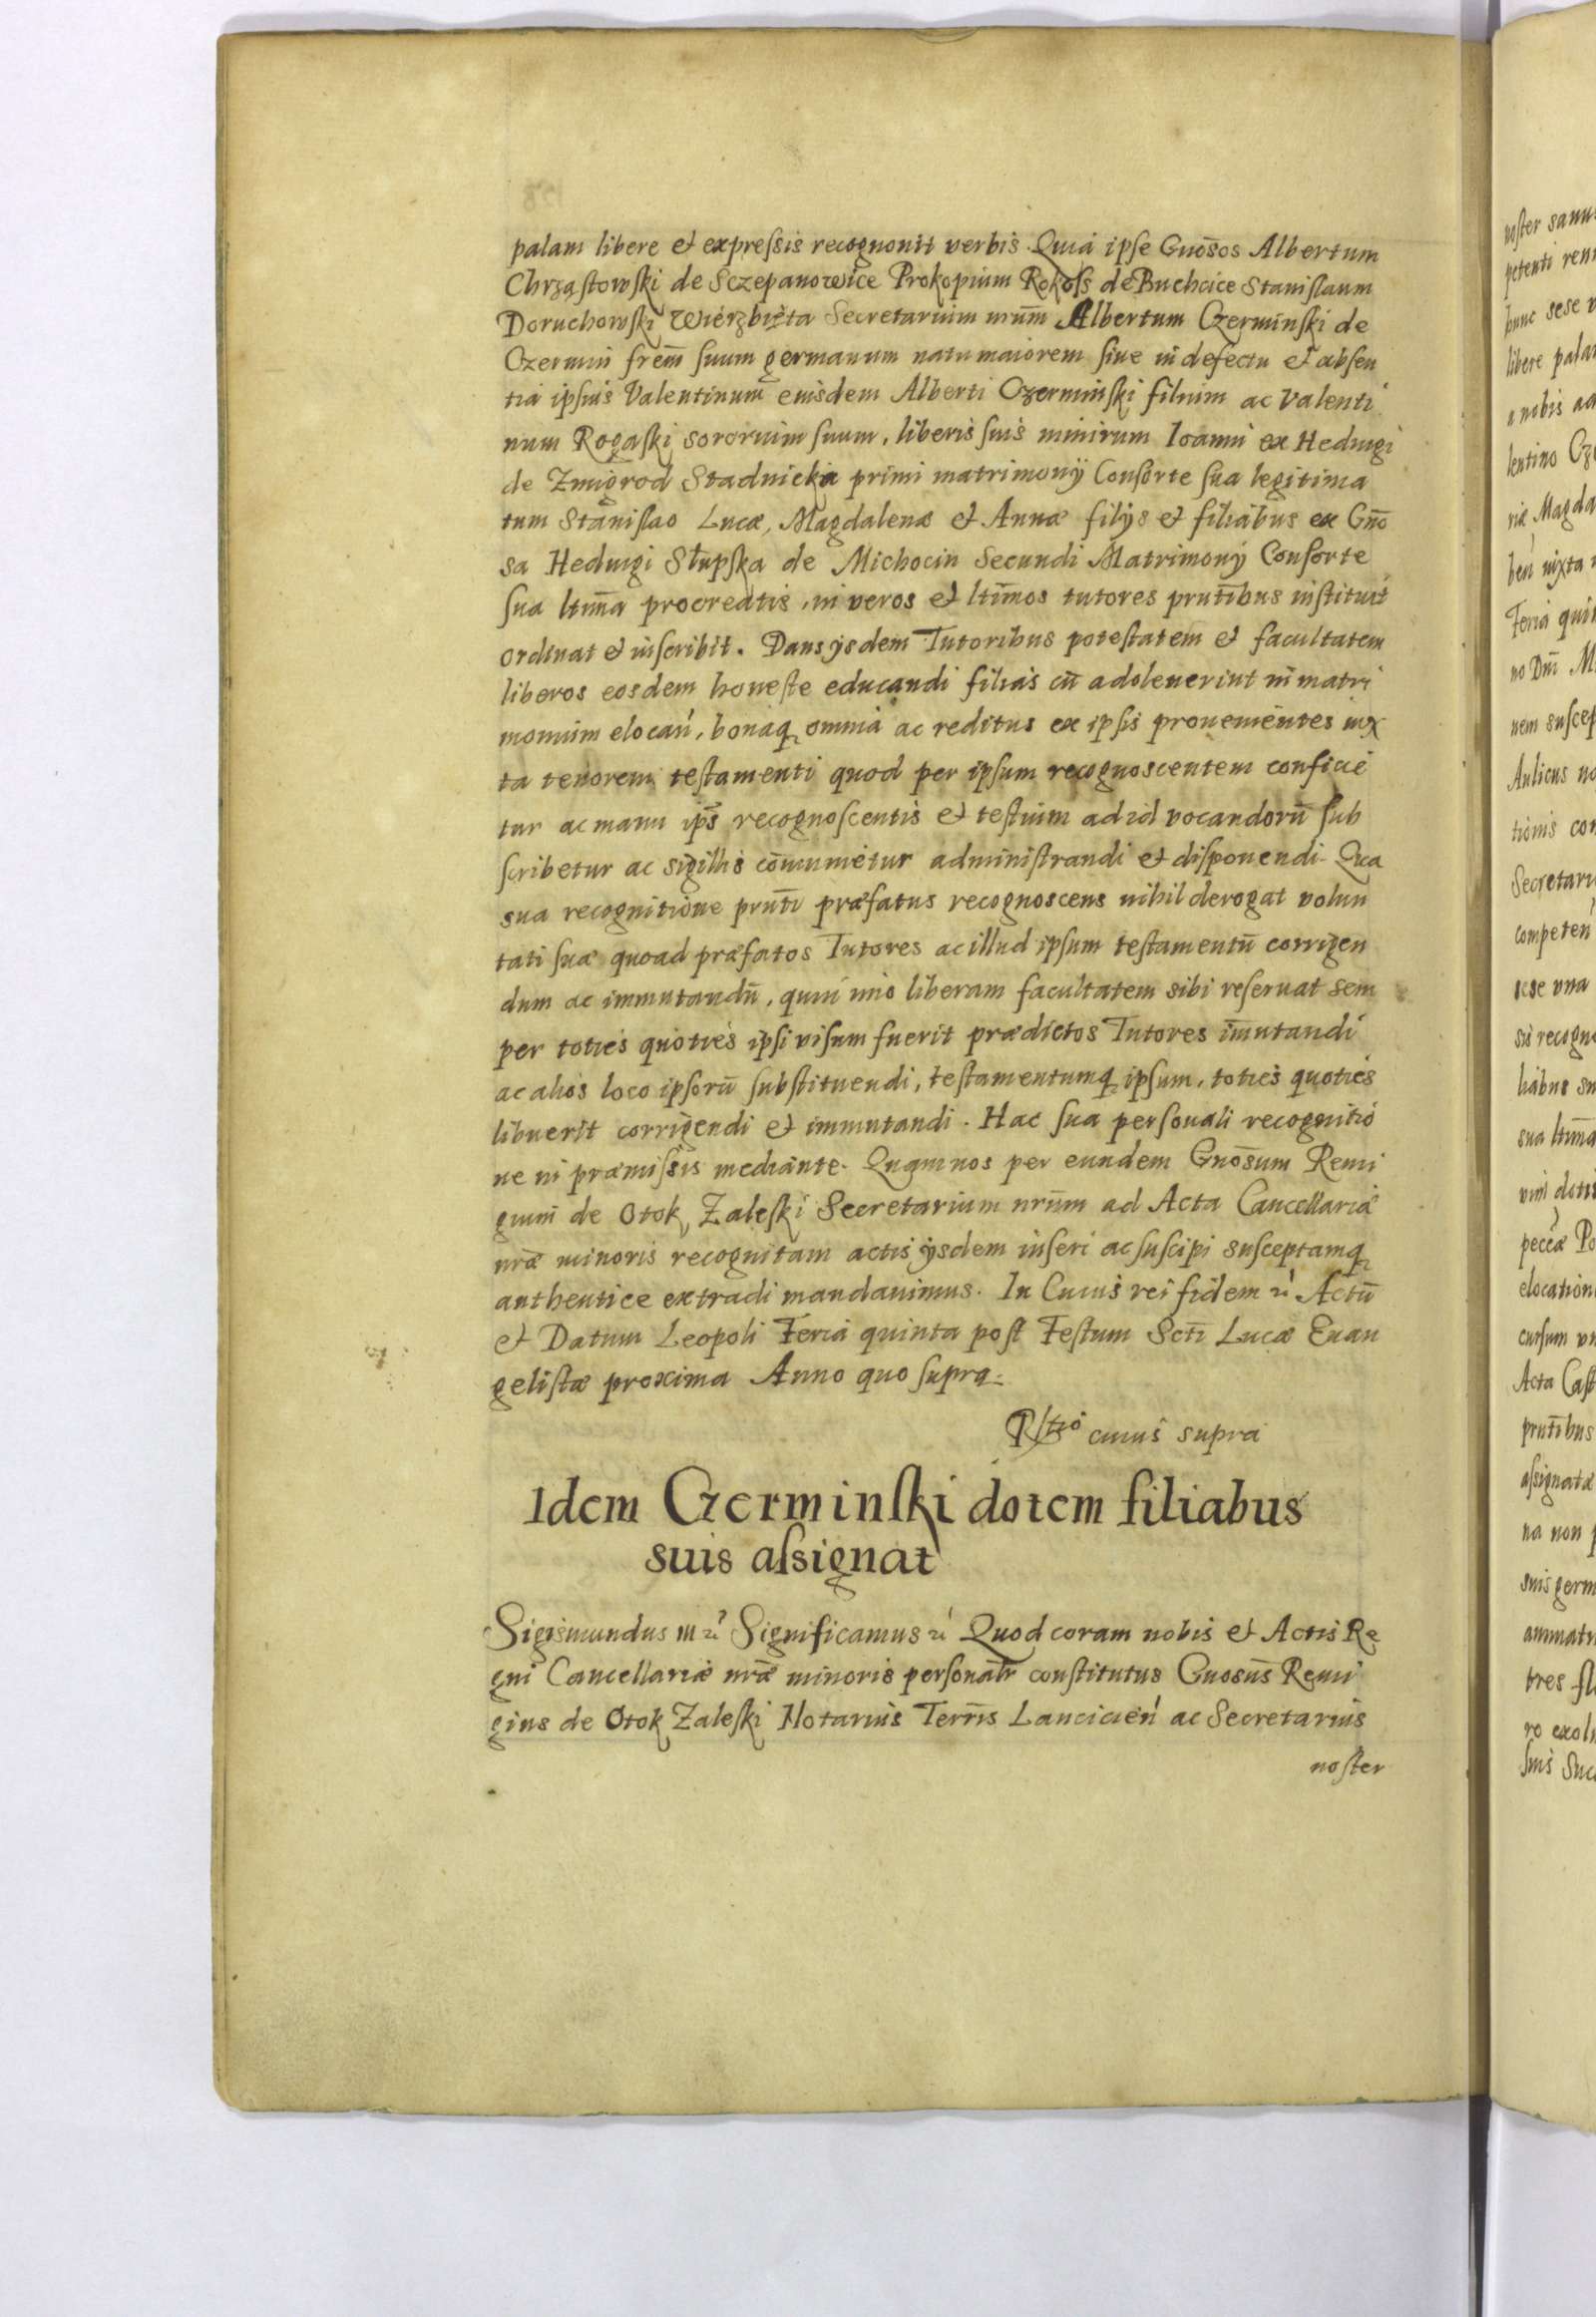 palam libere et expressis recognovit verbis. Quia ipse Gnōsos Albertum
Chrząstowski de Sczepanowice Prokopium Rokoss de Buchcice Stanislaum
Doruchowski Wierzbięta Secretarium nrūm Albertum Czerminski de
Czermin frēm suum germanum natu maiorem sive in defectu et absen
tia ipsius Valentinum eiusdem Alberti Czerminski filium ac Valenti
num Rogaski sororium suum, liberis suis nimirum Ioanni ex Hedvigi
de Zmigrod Stadnicka primi matrimonÿ Consorte sua legitima
tum Stanislao Lucæ, Magdalenæ et Annæ filÿs et filiabus ex Gnō
sa Hedvigi Słupska de Michocin Secundi Matrimonÿ Consorte
sua ltīma procreatis, in veros et ltīmos tutores pruntībus instituit
ordinat et inscribit. Dans ÿsdem Tutoribus potestatem et facultatem
liberos eosdem honeste educandi filias cū adoleverint in matri
monium elocan, bonaq omnia ac reditus ex ipsis provenientes iux
ta tenorem testamenti quod per ipsum recognoscentem conficie
tur ac manu ips̄ recognoscentis et testium ad id vocandorū sub
scribetur ac sigillis cōmunietur administrandi et disponendi. Qua
sua recognitione prūnti præfatus recognoscens nihil derogat volun
tati suæ quoad præfatos Tutores ac illud ipsum testamentū corrigen
dum ac immutandū, quin imo liberam facultatem sibi reservat sem
per toties quoties ipsi visum fuerit prædictos Tutores im̄utandi
ac alios loco ipsorū substituendi, testamentumq ipsum, toties quoties
libuerit corrigendi et immutandi. Hac sua personali recognitio
ne in præmissis mediante. Quam nos per eundem Gnōsum Remi
gium de Otok Zaleski Secretarium nrūm ad Acta Cancellariæ
nrǣ minoris recognitam actis ÿsdem inseri ac suscipi susceptamq
authentice extradi mandavimus. In Cuius rei fidem rc Actū
et Datum Leopoli Feria quinta post Festum Sctī Lucæ Evan
gelistæ proxima Anno quo supra.
Rtio cuius supra
Idem Czerminski dotem filiabus
suis assignat
Sigismundus III rc Significamus rc Quod coram nobis et Actis Re
gni Cancellariæ nrǣ minoris personalr constitutus Gnosūs Remi
gius de Otok Zaleski Notarius Terrīs Lancicien ac Secretarius
noster